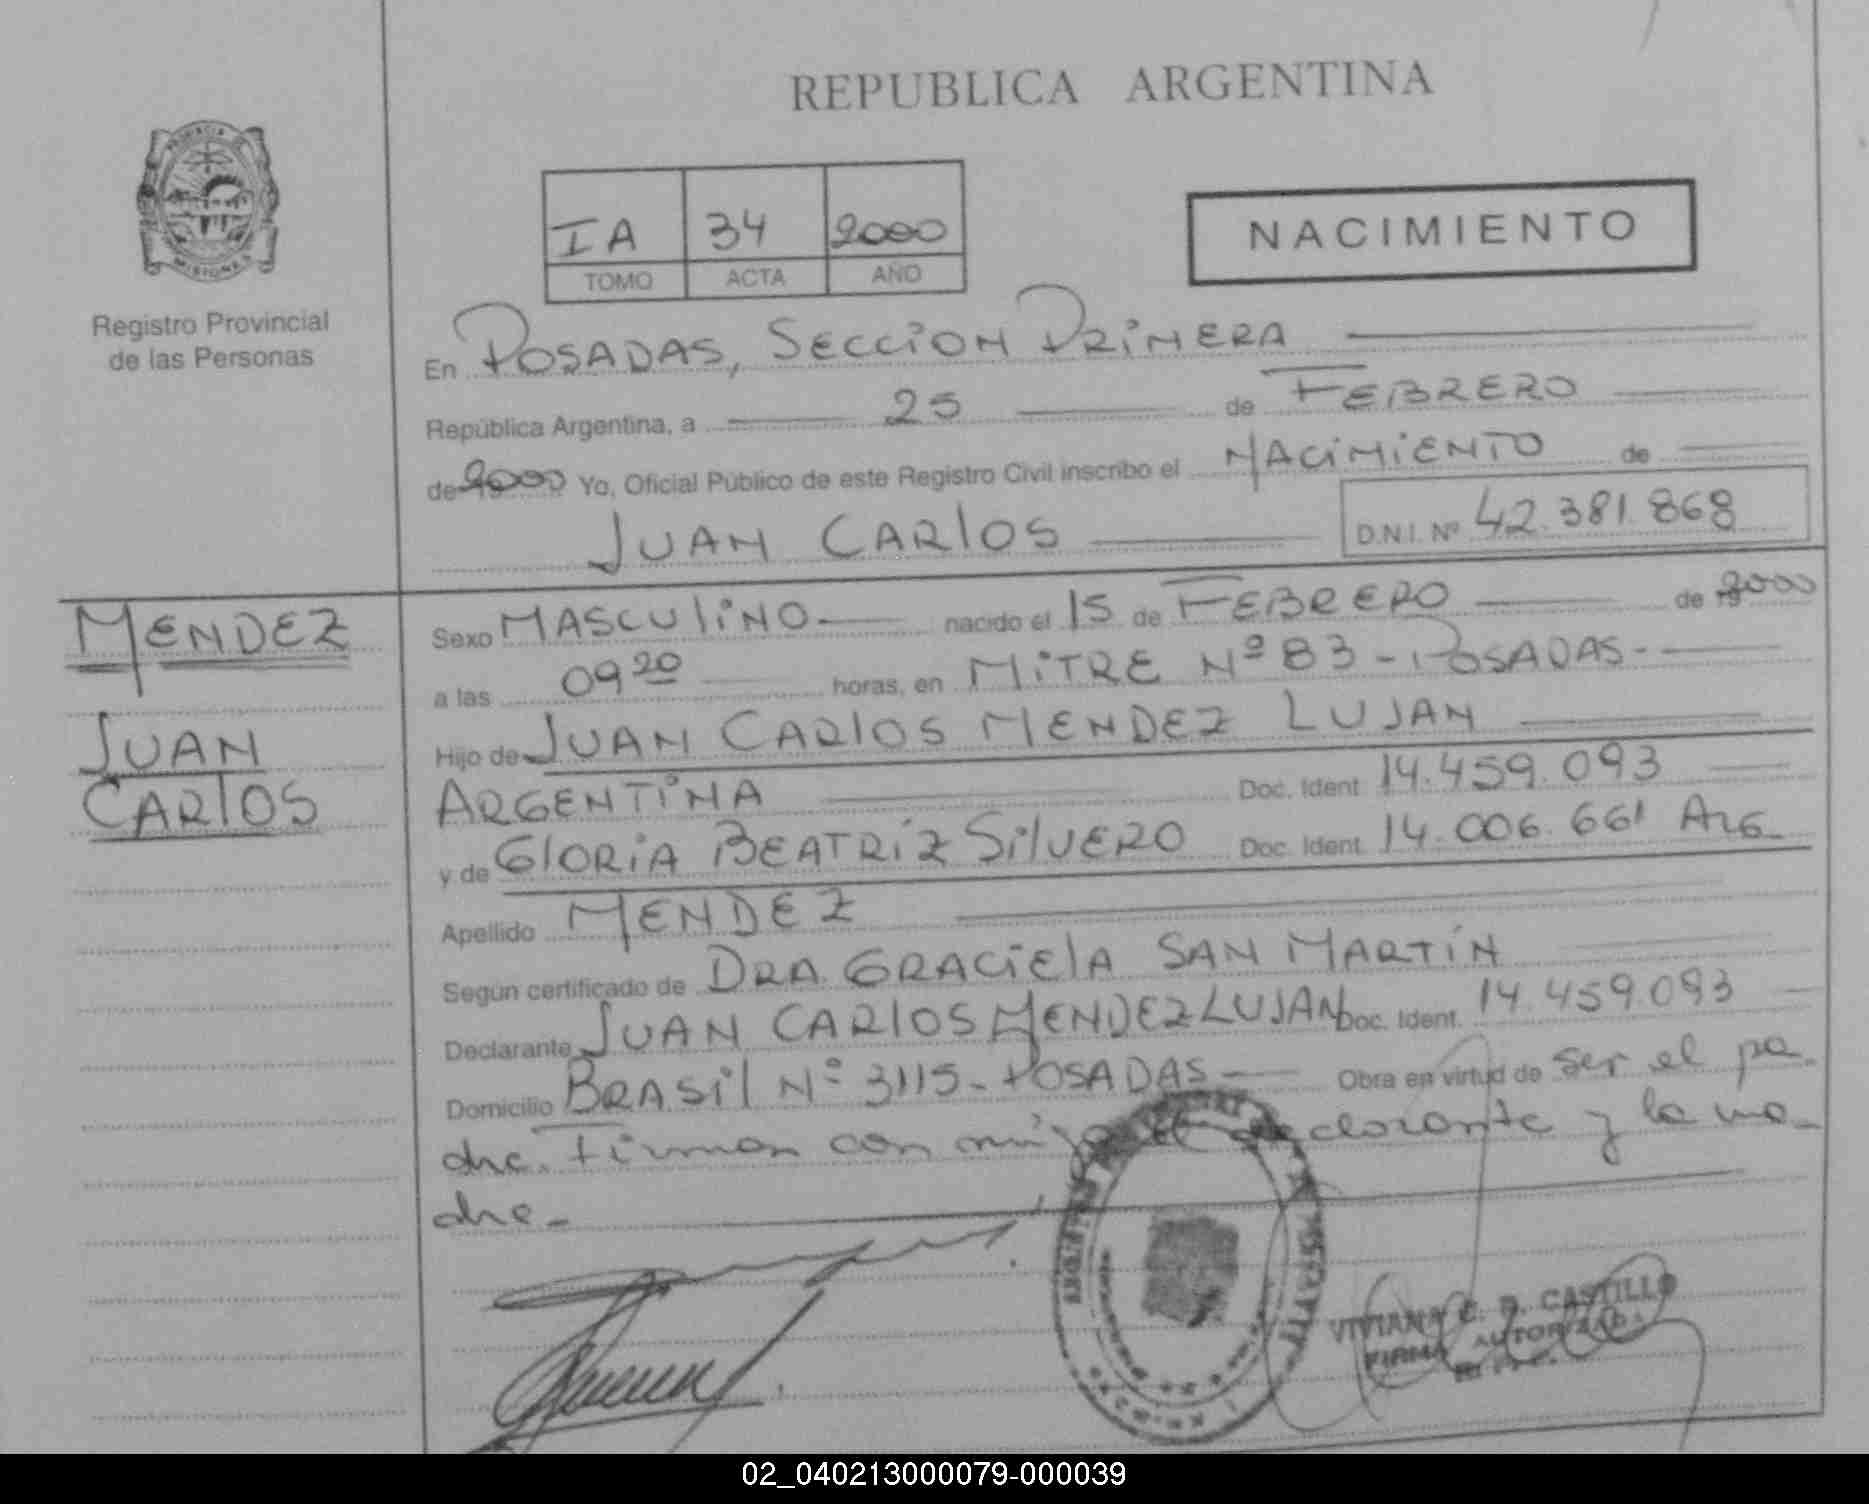 REPUBLICA ARGENTINA
PROVINCIA DE
MISIONES
Registro Provincial
de las Personas
IA 34 2000
TOMO ACTA AÑO
NACIMIENTO
En POSADAS, SECCION PRIMERA
República Argentina, a 25 de FEBRERO
de 2000 Yo, Oficial Público de este Registro Civil inscribo el NACIMIENTO de
JUAN CARLOS D.N.I. Nº 42.381.868
MENDEZ
JUAN
CARLOS
Sexo MASCULINO nacido el 15 de FEBRERO de 2000
a las 09 20 horas, en MITRE Nº 83 - POSADAS-
Hijo de JUAN CARLOS MENDEZ LUJAN
ARGENTINA Doc. Ident 14.459.093
y de GLORIA BEATRIZ SILVERO Doc. Ident. 14.006.661 ARG
Apellido MENDEZ
Según certificado de DRA. GRACIELA SAN MARTIN
Declarante JUAN CARLOS MENDEZ LUJAN Doc. Ident. 14.459.093
Domicilio BRASIL Nº 3115- POSADAS- Obra en virtud de ser el pa-
dre. Firman con migo el declarante y la ma-
dre-
VIVIANA E. R. CASTILLO
FIRMA AUTORIZADA
02_040213000079-000039